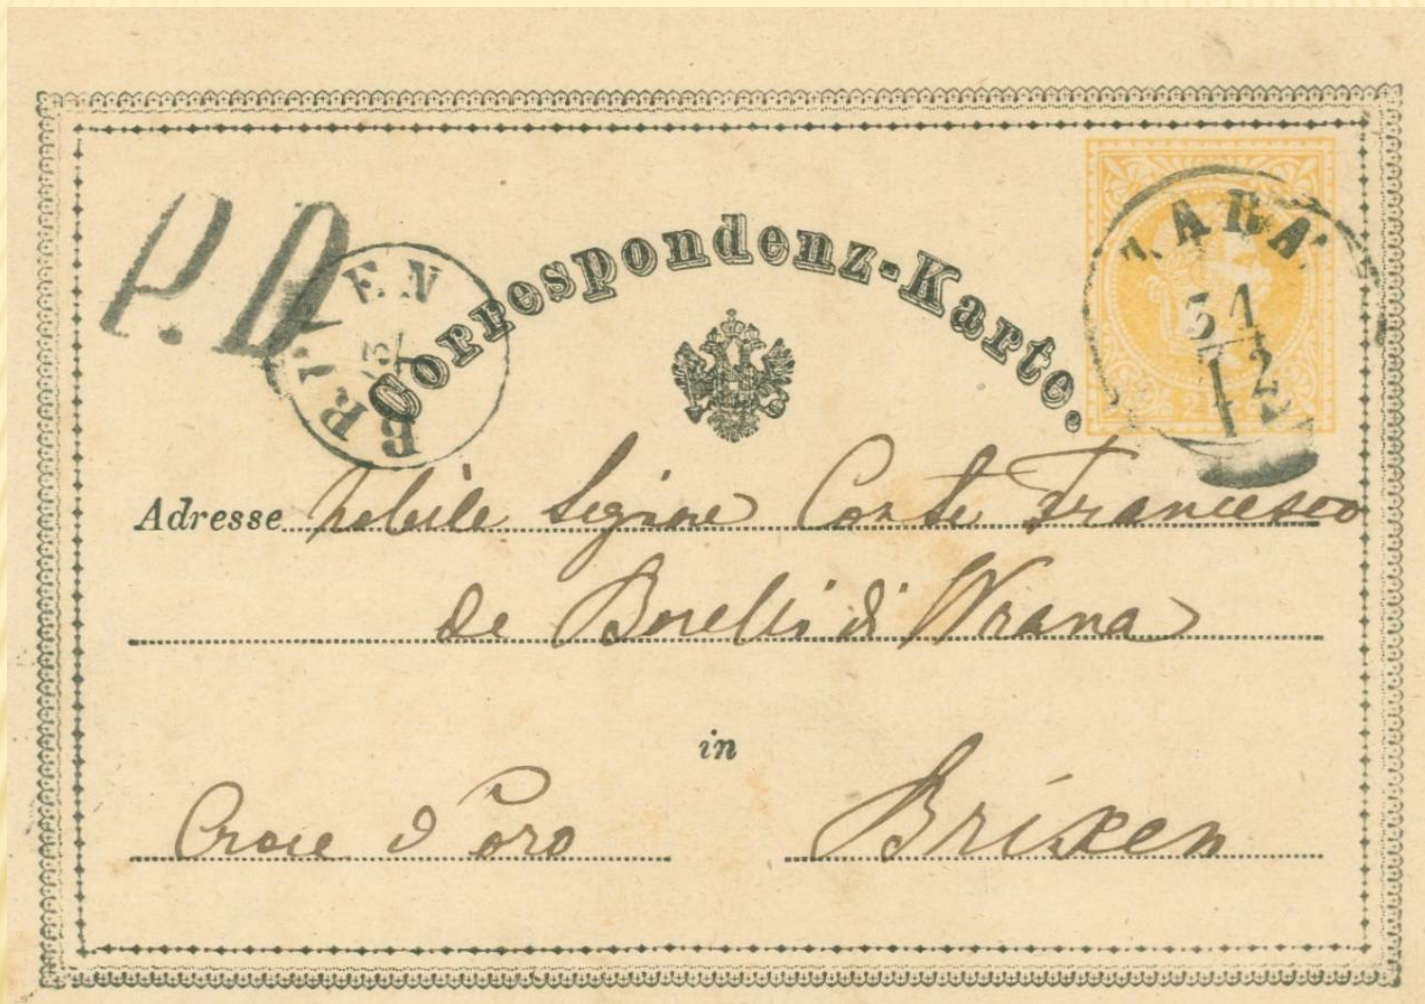 P.D.
BRIXEN
Correspondenz-Karte.
ZARA
31
12
Adresse Nobile Signore Conte Francesco
de Borelli di Wrana
in
Croce d'oro Brixen